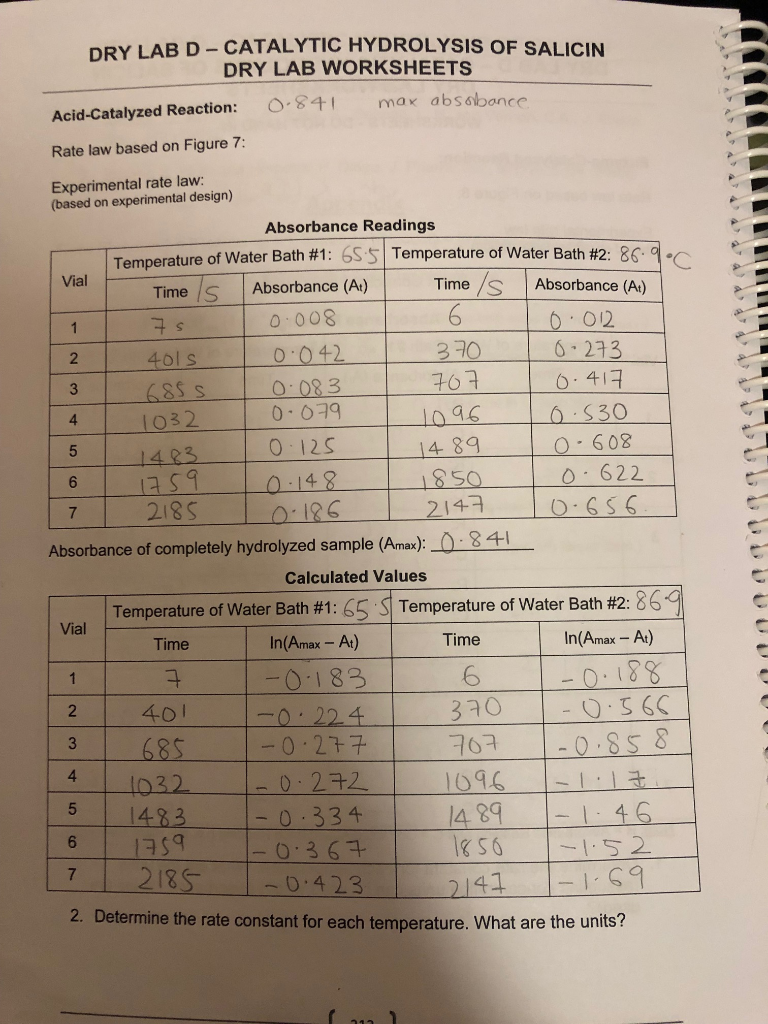 DRY LAB D – CATALYTIC HYDROLYSIS OF SALICIN
DRY LAB WORKSHEETS
Acid-Catalyzed Reaction: 0.841 max absorbance
Rate law based on Figure 7:
Experimental rate law:
(based on experimental design)
Absorbance Readings
Vial Temperature of Water Bath #1: 65.5 Temperature of Water Bath #2: 86.9 °C
Time /s Absorbance (At) Time /s Absorbance (At)
1 7 s 0.008 6 0.012
2 401 s 0.042 370 0.273
3 685 s 0.083 707 0.417
4 1032 0.079 1096 0.530
5 1483 0.125 1489 0.608
6 1759 0.148 1850 0.622
7 2185 0.186 2147 0.656
Absorbance of completely hydrolyzed sample (Amax): 0.841
Calculated Values
Vial Temperature of Water Bath #1: 65.5 Temperature of Water Bath #2: 86.9
Time ln(Amax – At) Time ln(Amax – At)
1 7 -0.183 6 -0.188
2 401 -0.224 370 -0.566
3 685 -0.277 707 -0.858
4 1032 -0.272 1096 -1.17
5 1483 -0.334 1489 -1.46
6 1759 -0.367 1850 -1.52
7 2185 -0.423 2147 -1.69
2. Determine the rate constant for each temperature. What are the units?